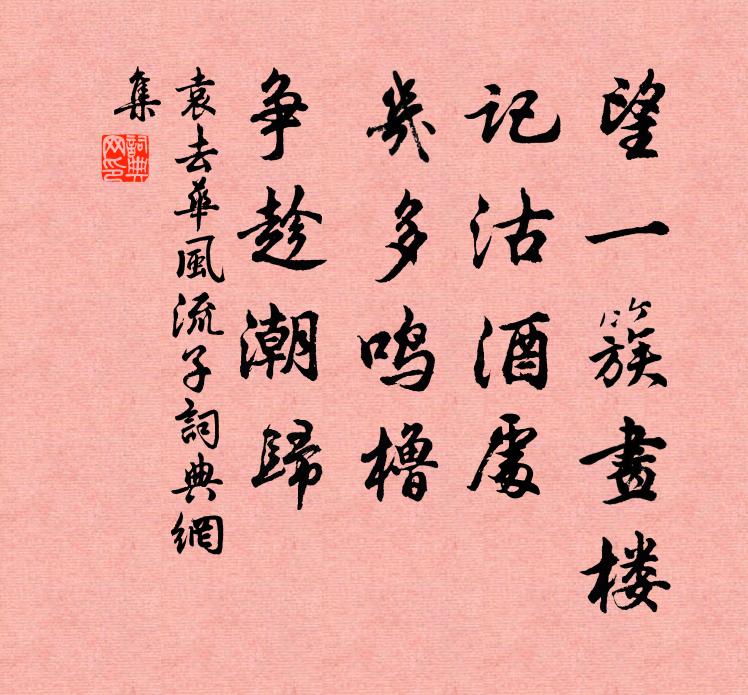 望一簇畫楼
記沽酒處
幾多鳴櫓
争趁潮歸
袁去華風流子詞典網
集
詞典网印